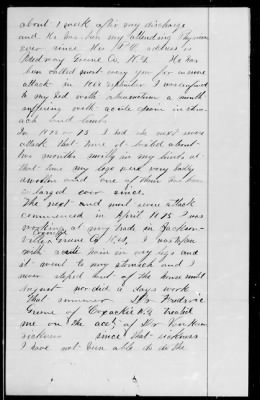 about 1 week after my discharge
and He has been my attending Physician
ever since His P.O. address is
Greene Co, N.Y. He has
been called most every year for severe
attack in 1868 September I was confined
to my bed with rheumatism a month
suffering with acute pain in stomach
and limbs
In 1872 or 73 I had the next severe
attack that time it lasted about
two months mostly in my limbs at
that time my legs were very badly
swollen and one of them has been
enlarged ever since.
The next and most severe attack
commenced in April 1878 I was
working at my trade in Jacksonville
Greene Co N.Y., I was taken
with acute pain in my legs and
it went to my stomach and I
never stoped out of the house until
August nor did a days work
That summer Dr Frederic
Greene of Coxsackie N.Y. treated
me on the acct of Dr Van
sickness since that sickness
I have not been able to do the